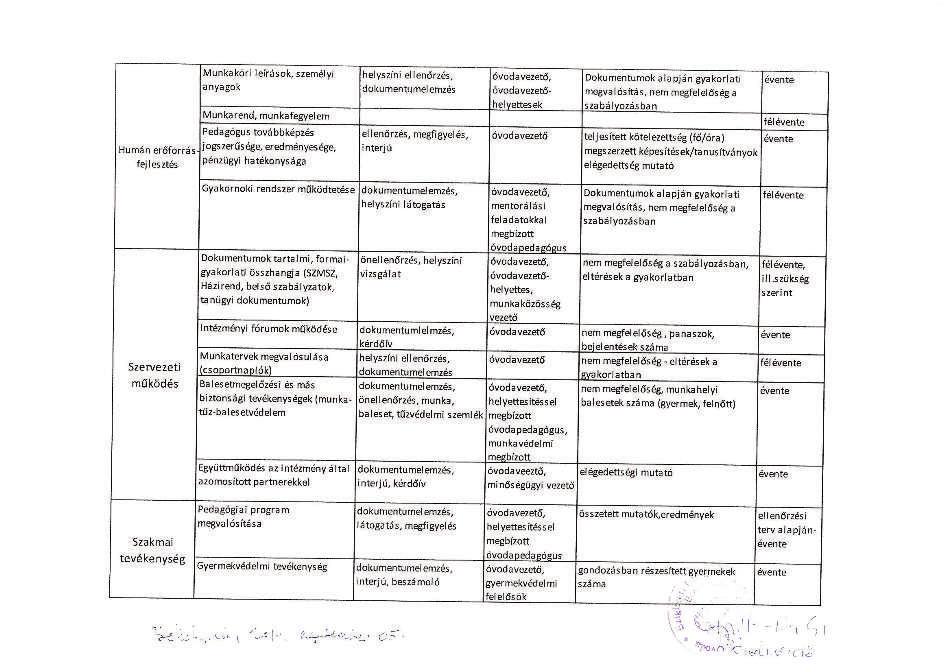 Munkaköri leírások, személyi anyagok | helyszíni ellenőrzés, dokumentumelemzés | óvodavezető, óvodavezető-helyettesek | Dokumentumok alapján gyakorlati megvalósítás, nem megfelelőség a szabályozásban | évente
Munkarend, munkafegyelem | félévente
Humán erőforrás-fejlesztés | Pedagógus továbbképzés jogszerűsége, eredményesége, pénzügyi hatékonysága | ellenőrzés, megfigyelés, interjú | óvodavezető | teljesített kötelezettség (fő/óra) megszerzett képesítések/tanusítványok elégedettség mutató | évente
Gyakornoki rendszer működtetése | dokumentumelemzés, helyszíni látogatás | óvodavezető, mentorálási feladatokkal megbízott óvodapedagógus | Dokumentumok alapján gyakorlati megvalósítás, nem megfelelőség a szabályozásban | félévente
Dokumentumok tartalmi, formai-gyakorlati összhangja (SZMSZ, Házirend, belső szabályzatok, tanügyi dokumentumok) | önellenőrzés, helyszíni vizsgálat | óvodavezető, óvodavezető-helyettes, munkaközösség vezető | nem megfelelőség a szabályozásban, eltérések a gyakorlatban | félévente, ill.szükség szerint
Intézményi fórumok működése | dokumentumlelmzés, kérdőív | óvodavezető | nem megfelelőség , panaszok, bejelentések száma | évente
Szervezeti működés | Munkatervek megvalósulása (csoportnaplók) | helyszíni ellenőrzés, dokumentumelemzés | óvodavezető | nem megfelelőség - eltérések a gyakorlatban | félévente
Balesetmegelőzési és más biztonsági tevékenységek (munka-tűz-balesetvédelem | dokumentumelemzés, önellenőrzés, munka, baleset, tűzvédelmi szemlék | óvodavezető, helyettesítéssel megbízott óvodapedagógus, munkavédelmi megbízott | nem megfelelőség, munkahelyi balesetek száma (gyermek, felnőtt) | évente
Együttműködés az intézmény által azomosított partnerekkel | dokumentumelemzés, interjú, kérdőív | óvodaveeztő, minőségügyi vezető | elégedettségi mutató | évente
Szakmai tevékenység | Pedagógiai program megvalósítása | dokumentumelemzés, látogatás, megfigyelés | óvodavezető, helyettesítéssel megbízott óvodapedagógus | összetett mutatók,eredmények | ellenőrzési terv alapján-évente
Gyermekvédelmi tevékenység | dokumentumelemzés, interjú, beszámoló | óvodavezető, gyermekvédelmi felelősök | gondozásban részesített gyermekek száma | évente